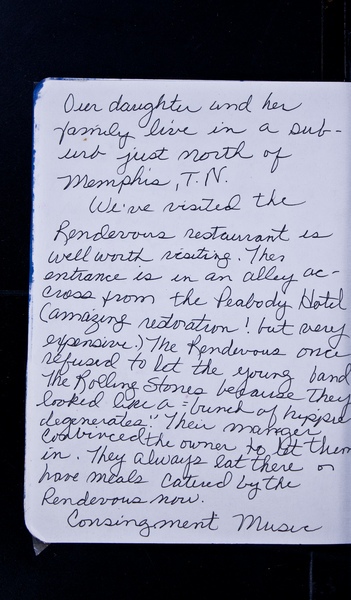 Our daughter and her
family live in a sub-
urb just north of
Memphis, T.N.
We've visited the
Rendevous restaurant is
well worth visiting. Ther
entrance is in an alley ac-
cross from the Peabody Hotel
(amazing restoration! but very
expensive.) The Rendevous once
refused to let the young band
The Rolling Stones because they
looked like a "bunch of hippie
degenerates." Their manger
convinced the owner to let them
in. They always eat there or
have meals catred by the
Rendevous now.
Consingment Music